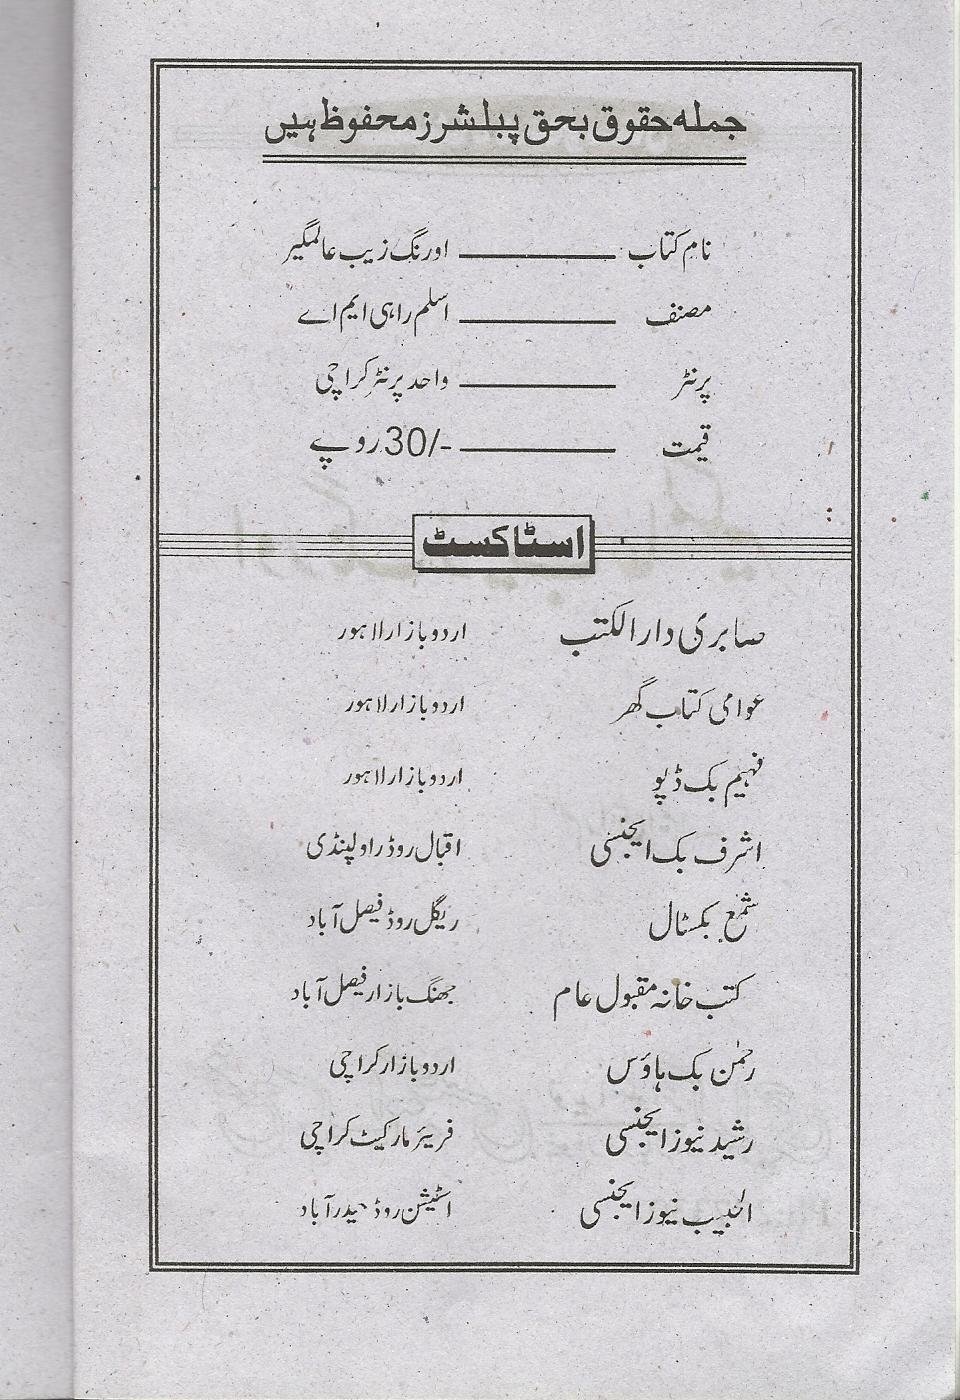 جملہ حقوق بحق پبلشرز محفوظ ہیں
نام کتاب ـــــــــ اورنگ زیب عالمگیر
مصنف ـــــــــ اسلم راہی ایم اے
پرنٹر ـــــــــ واحد پرنٹر کراچی
قیمت ـــــــــ 30/- روپے
اسٹاکسٹ
صابری دار الکتب اردو بازار لاہور
عوامی کتاب گھر اردو بازار لاہور
فہیم بک ڈپو اردو بازار لاہور
اشرف بک ایجنسی اقبال روڈ راولپنڈی
شمع بکسٹال ریگل روڈ فیصل آباد
کتب خانہ مقبول عام جھنگ بازار فیصل آباد
رحمٰن بک ہاؤس اردو بازار کراچی
رشید نیوز ایجنسی فریئر مارکیٹ کراچی
الحبیب نیوز ایجنسی اسٹیشن روڈ حیدر آباد